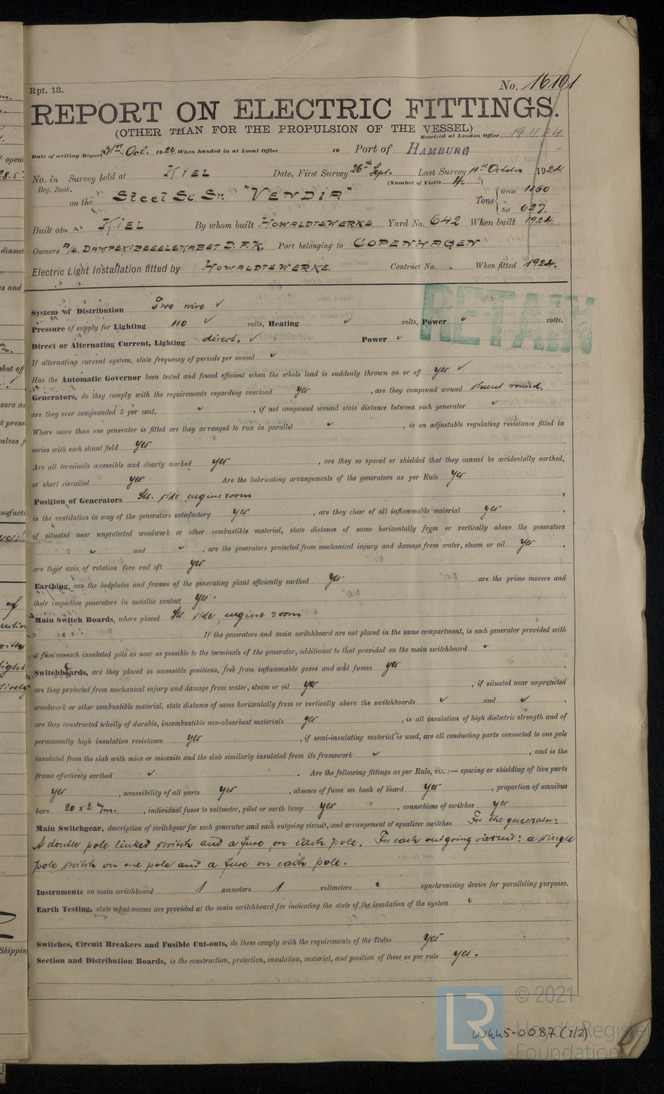 Rpt. 13.
No. 16191
REPORT ON ELECTRIC FITTINGS.
(OTHER THAN FOR THE PROPULSION OF THE VESSEL)
Received at London Office
Date of writing Report 31st Oct. 1924. When handed in at Local Office 19 Port of HAMBURG
No. in Survey held at KIEL Date, First Survey 26th Sept. Last Survey 11th October 1924
Reg. Book. (Number of Visits 4.)
on the Steel Sc. Sr. "VENDIA" Tons Gross 1150 Net 627.
Built at KIEL By whom built HOWALDTSWERKE Yard No. 642 When built 1924.
Owners A/S DAMPSKIBSSELSKABET D.F.K. Port belonging to COPENHAGEN
Electric Light Installation fitted by HOWALDTSWERKE. Contract No. When fitted 1924.
RETAIN
System of Distribution Two wire ✓
Pressure of supply for Lighting 110 ✓ volts, Heating ✓ volts, Power ✓ volts.
Direct or Alternating Current, Lighting direct. ✓ Power ✓
If alternating current system, state frequency of periods per second ✓
Has the Automatic Governor been tested and found efficient when the whole load is suddenly thrown on or off yes ✓
Generators, do they comply with the requirements regarding overload yes, are they compound wound shunt wound.
are they over compounded 5 per cent. ✓, if not compound wound state distance between each generator ✓
Where more than one generator is fitted are they arranged to run in parallel ✓, is an adjustable regulating resistance fitted in
series with each shunt field yes
Are all terminals accessible and clearly marked yes, are they so spaced or shielded that they cannot be accidentally earthed,
or short circuited yes Are the lubricating arrangements of the generators as per Rule yes
Position of Generators Stb. side engine room,
is the ventilation in way of the generators satisfactory yes, are they clear of all inflammable material yes,
if situated near unprotected woodwork or other combustible material, state distance of same horizontally from or vertically above the generators
✓ and ✓, are the generators protected from mechanical injury and damage from water, steam or oil yes,
are their axis of rotation fore and aft yes
Earthing, are the bedplates and frames of the generating plant efficiently earthed yes are the prime movers and
their respective generators in metallic contact yes.
Main Switch Boards, where placed Stb. side, engine room
If the generators and main switchboard are not placed in the same compartment, is each generator provided with
a fuse on each insulated pole as near as possible to the terminals of the generator, additional to that provided on the main switchboard ✓
Switchboards, are they placed in accessible positions, free from inflammable gases and acid fumes yes,
are they protected from mechanical injury and damage from water, steam or oil yes, if situated near unprotected
woodwork or other combustible material, state distance of same horizontally from or vertically above the switchboards ✓ and ✓,
are they constructed wholly of durable, incombustible non-absorbent materials yes, is all insulation of high dielectric strength and of
permanently high insulation resistance yes, if semi-insulating material is used, are all conducting parts connected to one pole
insulated from the slab with mica or micanite and the slab similarly insulated from its framework ✓, and is the
frame effectively earthed ✓. Are the following fittings as per Rule, viz.:— spacing or shielding of live parts
yes, accessibility of all parts yes, absence of fuses on back of board yes, proportion of omnibus
bars 20 x 2 m/m., individual fuses to voltmeter, pilot or earth lamp yes, connections of switches yes
Main Switchgear, description of switchgear for each generator and each outgoing circuit, and arrangement of equalizer switches For the generator:
A double pole linked switch and a fuse on each pole. For each outgoing circuit: a single
pole switch on one pole and a fuse on each pole.
Instruments on main switchboard 1 ammeters 1 voltmeters synchronising device for paralleling purposes.
Earth Testing, state what means are provided at the main switchboard for indicating the state of the insulation of the system
Switches, Circuit Breakers and Fusible Cut-outs, do these comply with the requirements of the Rules yes
Section and Distribution Boards, is the construction, protection, insulation, material, and position of these as per rule yes.
© 2021
LR Lloyd's Register
Foundation
W445-0087 (1/2)